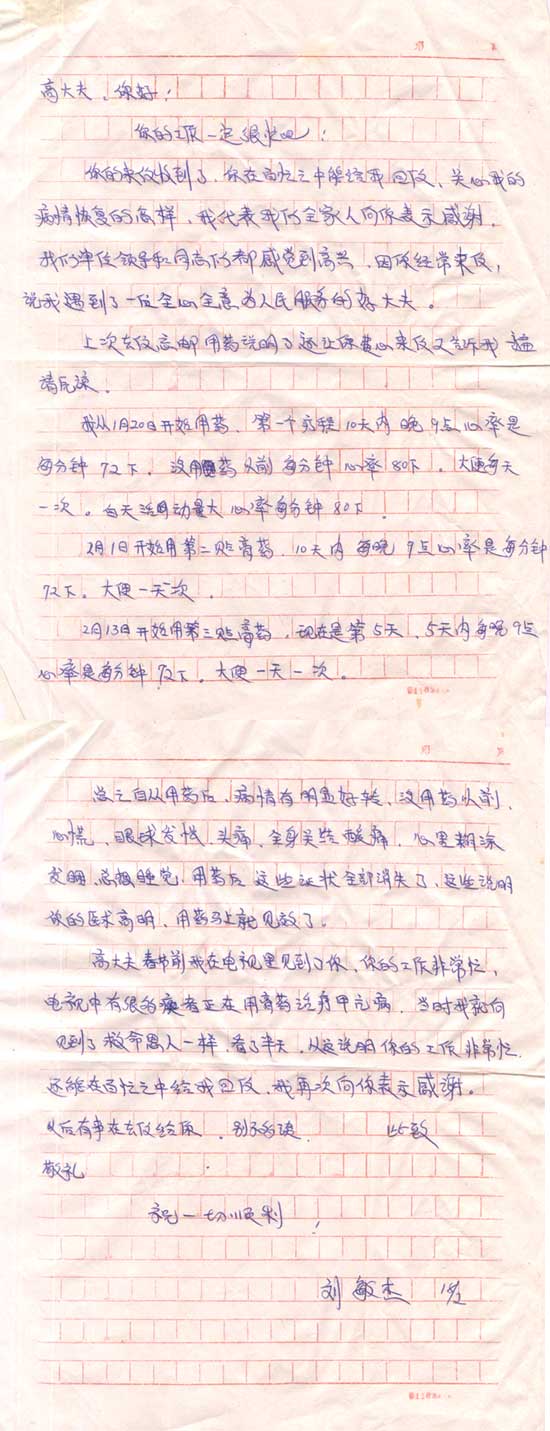 第 页
高大夫，你好！
你的工作一定很忙吧！
你的来信收到了，你在百忙之中能给我回信，关心我的
病情恢复的怎样，我代表我们全家人向你表示感谢，
我们单位领导和同志们都感觉到高兴，因你经常来信，
说我遇到了一位全心全意为人民服务的好大夫。
上次去信忘邮用药说明了还让你费心来信又告诉我一遍
请原谅．
我从1月20日开始用药，第一个疗程10天内晚9点心率是
每分钟72下．没用药以前每分钟心率80下．大便每天
一次。白天活动量大心率每分钟80下．
2月1日开始用第二贴膏药．10天内每晚9点心率是每分钟
72下。大便一天一次．
2月13日开始用第三贴膏药，现在是第5天，5天内每晚9点
心率是每分钟72下。大便一天一次。
第 页
总之自从用药后，病情有明显好转，没用药以前，
心慌，眼球发胀，头痛，全身关节酸痛，心里糊涂
发困，总想睡觉，用药后这些证状全部消失了，这些说明
你的医术高明，用药马上就见效了。
高大夫春节前我在电视里见到了你，你的工作非常忙，
电视中有很多患者正在用膏药治疗甲亢病，当时我就向
见到了救命恩人一样，看了半天，从这说明你的工作非常忙，
还能在百忙之中给我回信，我再次向你表示感谢。
以后有事在去信给你，别不多谈． 此致
敬礼
祝一切顺利！
刘敏杰